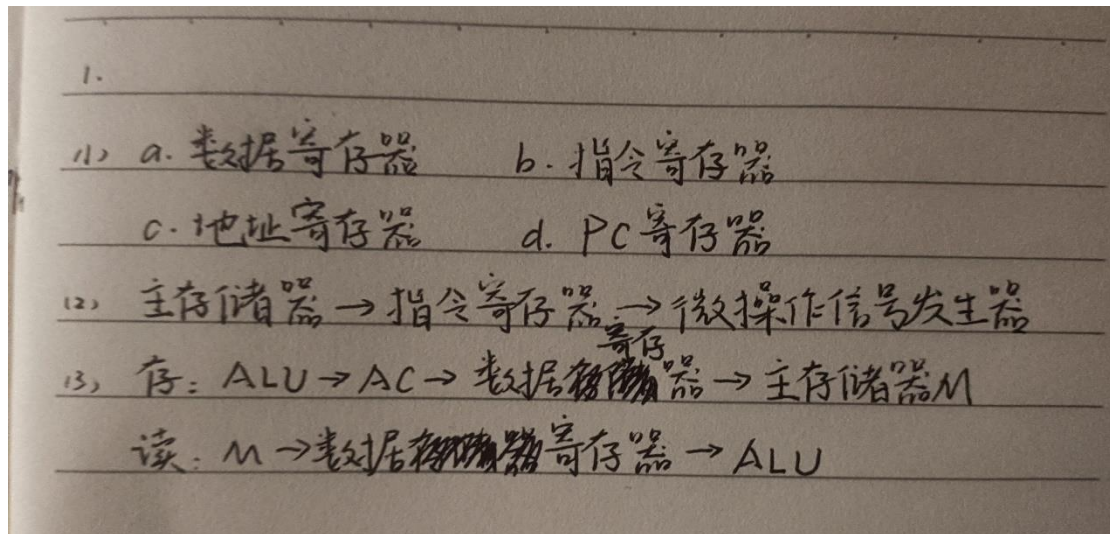 1.
(1) a. 数据寄存器 b. 指令寄存器
c. 地址寄存器 d. PC寄存器
(2) 主存储器→指令寄存器→微操作信号发生器
(3) 存: ALU→AC→数据寄存器→主存储器M
读: M→数据寄存器→ALU